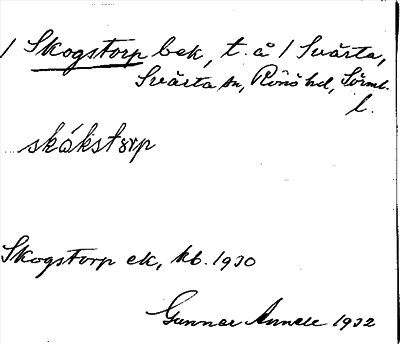 / Skogstorp bek, t. å / Svärta,
Svärta sn, Rönö hd, Sörml.
l.
skákstorp
Skogstorp ek, kb. 1930
Gunnar 1932